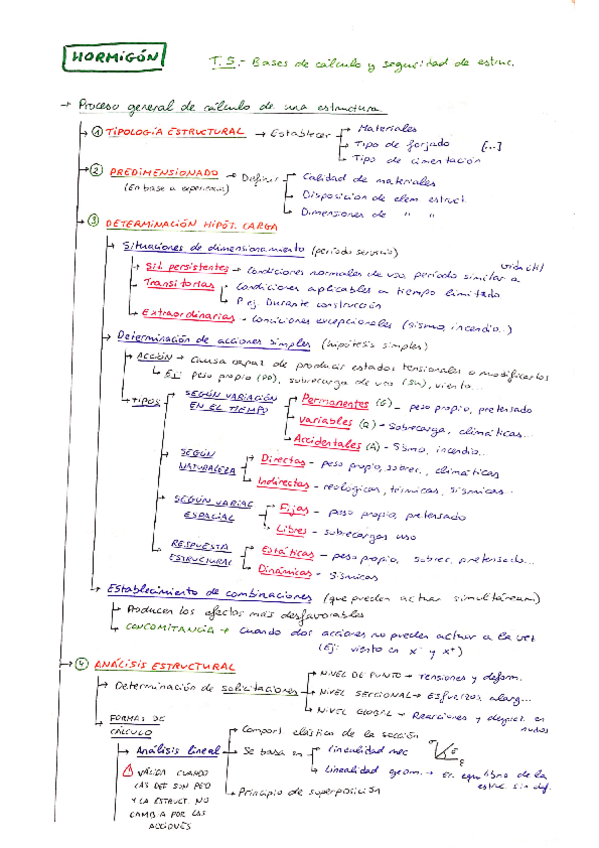 HORMIGÓN
T.5.- Bases de cálculo y seguridad de estruc.
→ Proceso general de cálculo de una estructura
① TIPOLOGÍA ESTRUCTURAL → Establecer → Materiales
→ Tipo de forjado [...]
→ Tipo de cimentación
② PREDIMENSIONADO → Definir → Calidad de materiales
(En base a experiencia)
→ Disposición de elem estruct.
→ Dimensiones de " "
③ DETERMINACIÓN HIPÓT. CARGA
→ Situaciones de dimensionamiento (periodo servicio)
→ Sit. persistentes → Condiciones normales de uso, periodo similar a vida útil
→ Transitorias → Condiciones aplicables a tiempo limitado
→ P ej. Durante construcción
→ Extraordinarias → Condiciones excepcionales (sismo, incendio..)
→ Determinación de acciones simples (hipótesis simples)
→ ACCIÓN → Causa capaz de producir estados tensionales o modificarlos
→ Ej: peso propio (PP), sobrecarga de uso (SU), viento...
→ TIPOS → SEGÚN VARIACIÓN EN EL TIEMPO → Permanentes (G) - peso propio, pretensado
→ Variables (Q) - Sobrecarga, climáticas...
→ Accidentales (A) - Sismo, incendio..
→ SEGÚN NATURALEZA → Directas - peso propio, sobrec., climáticas
→ Indirectas - reológicas, térmicas, sísmicas..
→ SEGÚN VARIAC ESPACIAL → Fijas - peso propio, pretensado
→ Libres - sobrecargas uso
→ RESPUESTA ESTRUCTURAL → Estáticas - peso propio, sobrec, pretensado...
→ Dinámicas - sísmicas
→ Establecimiento de combinaciones (que pueden actuar simultáneam)
→ Producen los efectos más desfavorables
→ CONCOMITANCIA → Cuando dos acciones no pueden actuar a la vez
(Ej: viento en x⁻ y x⁺)
④ ANÁLISIS ESTRUCTURAL
→ Determinación de solicitaciones → NIVEL DE PUNTO → Tensiones y deform.
→ NIVEL SECCIONAL → Esfuerzos, alarg...
→ NIVEL GLOBAL → Reacciones y desplaz. en nudos
→ FORMAS DE CÁLCULO
→ Análisis lineal → Comport elástico de la sección
→ Se basa en → Linealidad mec σ E ε
→ Linealidad geom. → Ec. equilibrio de la estruc sin def.
→ Principio de superposición
⚠ VÁLIDA CUANDO
LAS DEF SON PEQ
Y LA ESTRUCT. NO
CAMBIA POR LAS
ACCIONES